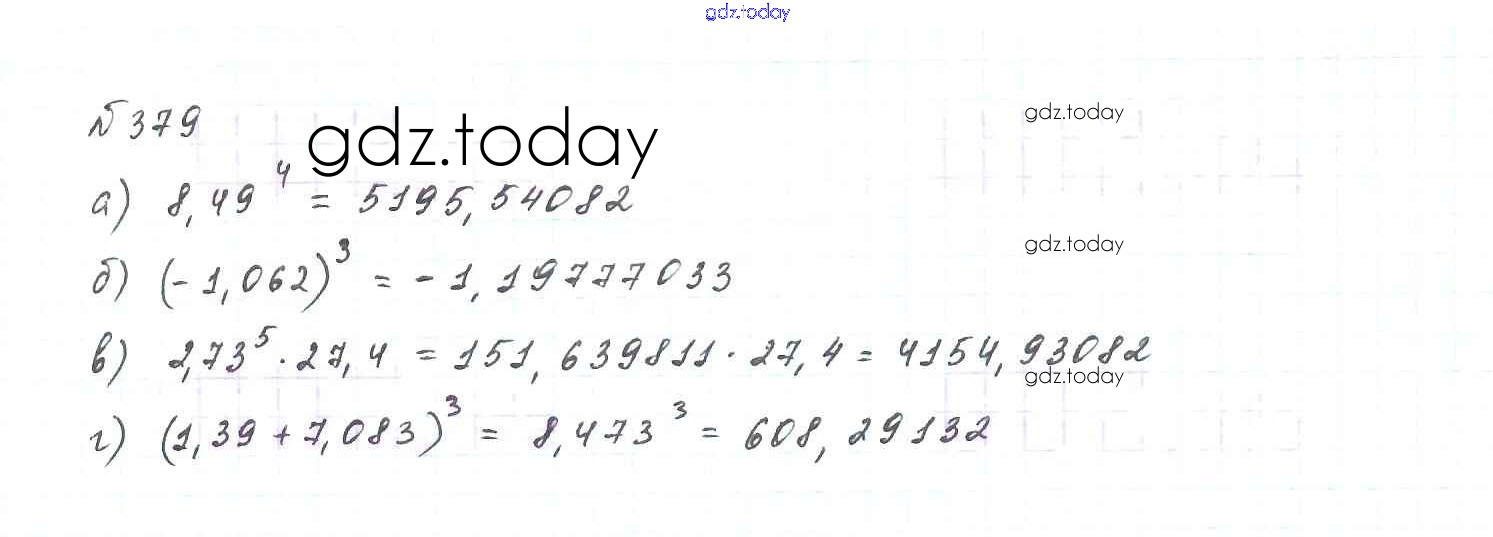 gdz.today
№ 379
gdz.today
gdz.today
а) 8,49⁴ = 5195,54082
gdz.today
б) (-1,062)³ = -1,19777033
в) 2,73⁵ · 27,4 = 151,639811 · 27,4 = 4154,93082
gdz.today
г) (1,39 + 7,083)³ = 8,473³ = 608,29132